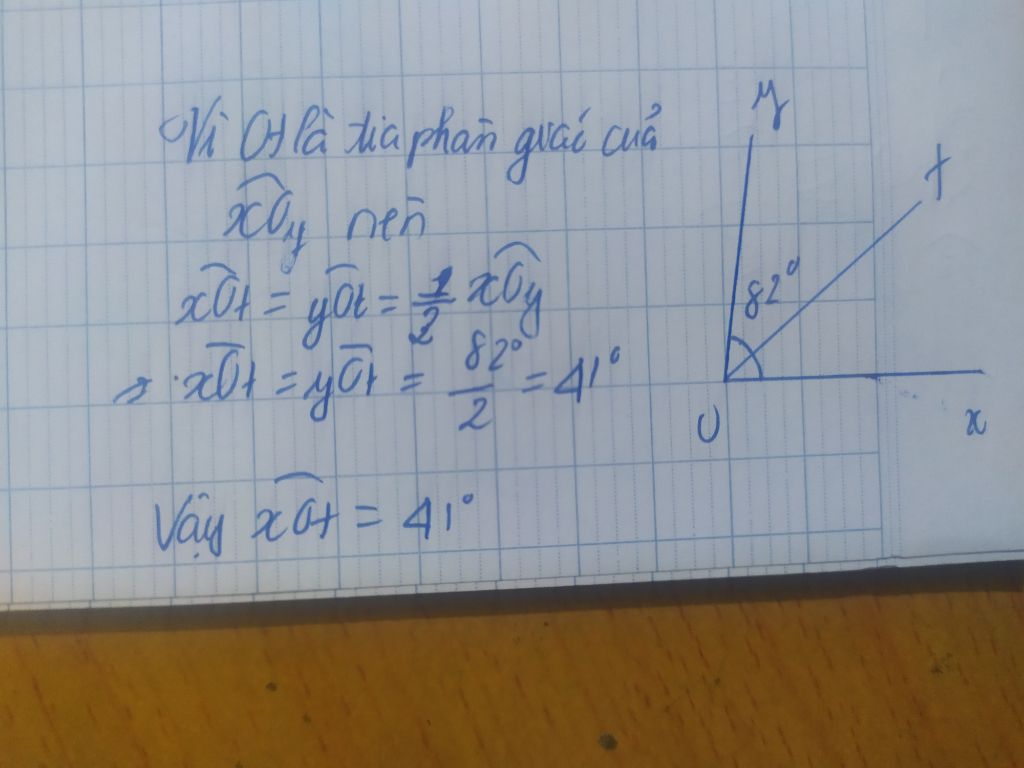 Vì Ot là tia phân giác của
xOy nên
xOt = yOt = 1/2 xOy
=> xOt = yOt = 82°/2 = 41°
Vậy xOt = 41°
y
t
82°
O
x